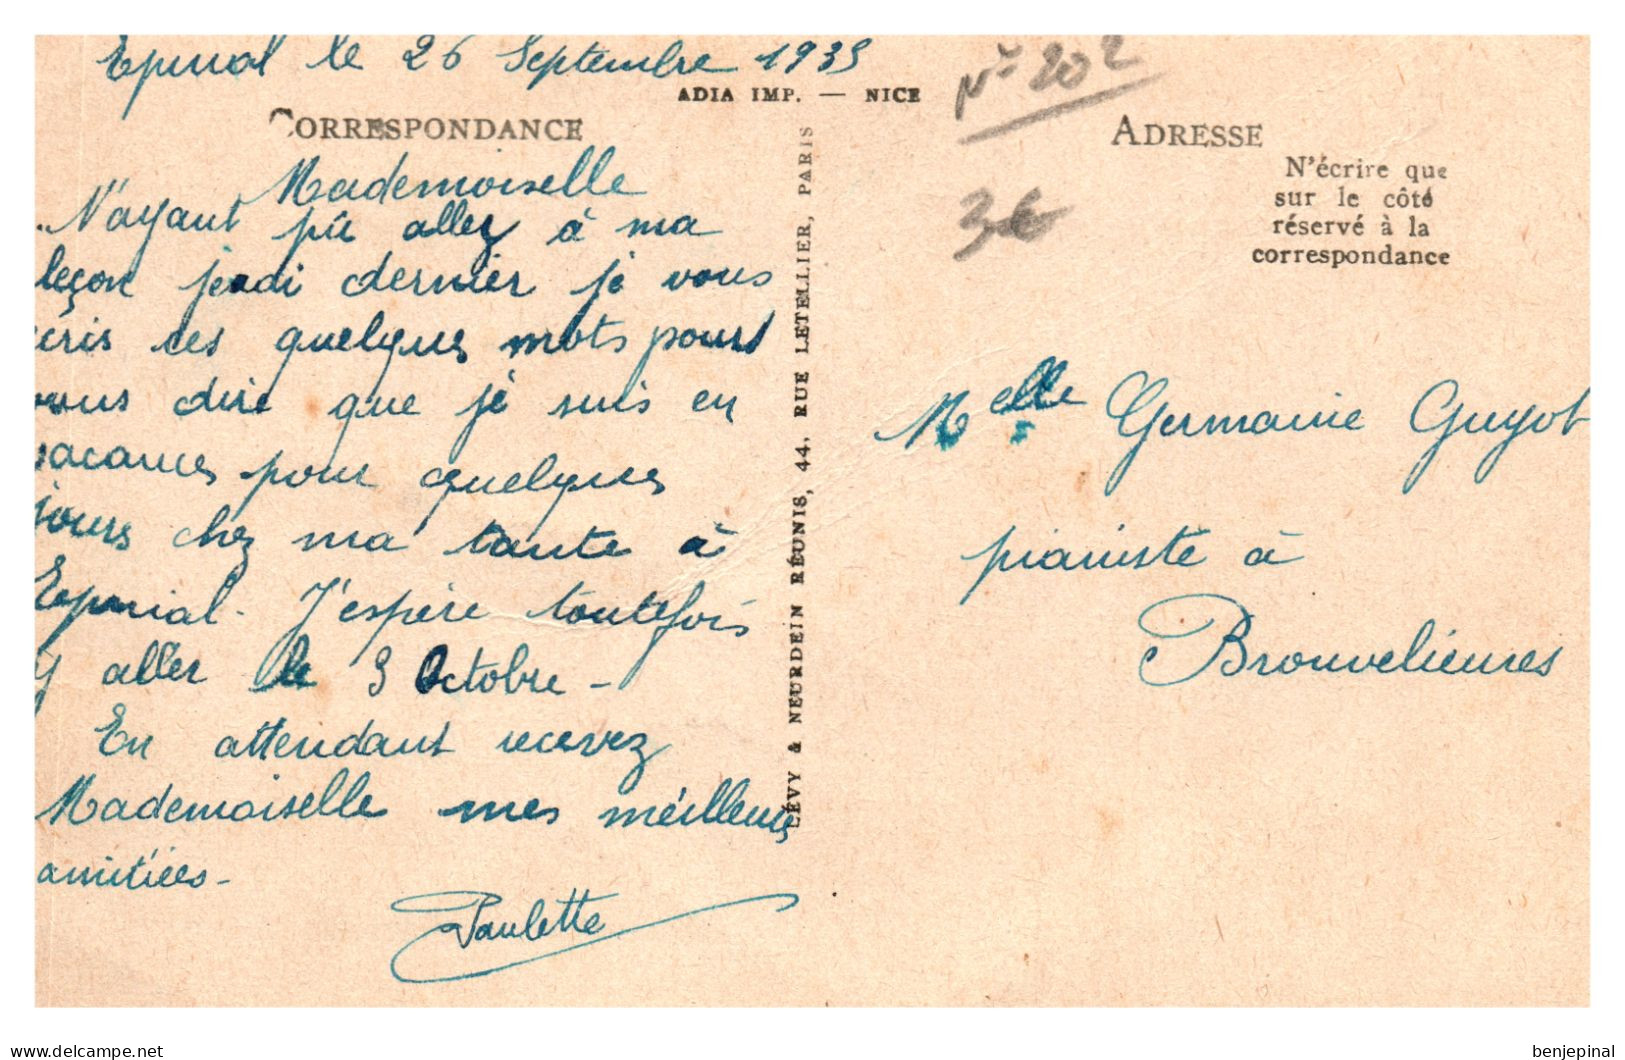 Epinal le 26 Septembre 1935
ADIA IMP. — NICE
CORRESPONDANCE
Mademoiselle
N'ayant pû allez à ma
leçon jeudi dernier je vous
écris ces quelques mots pour
vous dire que je suis en
vacances pour quelques
jours chez ma tante à
Epinal. J'espère toutefois
y aller le 3 Octobre -
En attendant recevez
Mademoiselle mes meilleures
amitiées -
Paulette
LÉVY & NEURDEIN RÉUNIS, 44, RUE LETELLIER, PARIS
N° 202
3€
ADRESSE
N'écrire que
sur le côté
réservé à la
correspondance
Melle Germaine Guyot
pianiste à
Brouvelieures
fr.delcampe.net
benjepinal